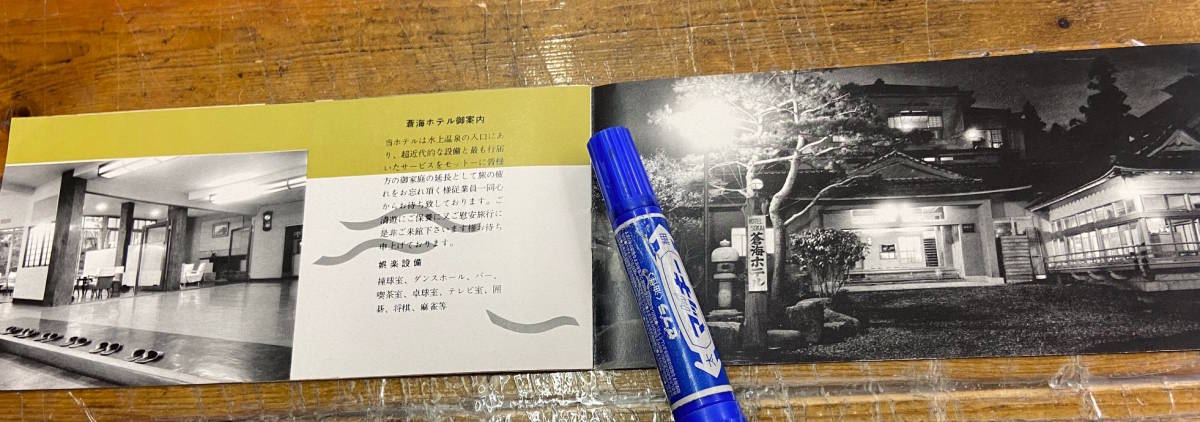 蒼海ホテル御案内
当ホテルは水上温泉の入口にあ
り、超近代的な設備と最も行届
いたサービスをモットーに皆様
方の御家庭の延長として旅の疲
れをお忘れ頂く様従業員一同心
からお待ち致しております。ご
清遊にご保養に又ご慰安旅行に
是非ご来館下さいます様お待ち
申上げております。
娯楽設備
撞球室、ダンスホール、バー、
喫茶室、卓球室、テレビ室、囲
碁、将棋、麻雀等
HOTEL
SOKAI
蒼海ホテル
マッキー